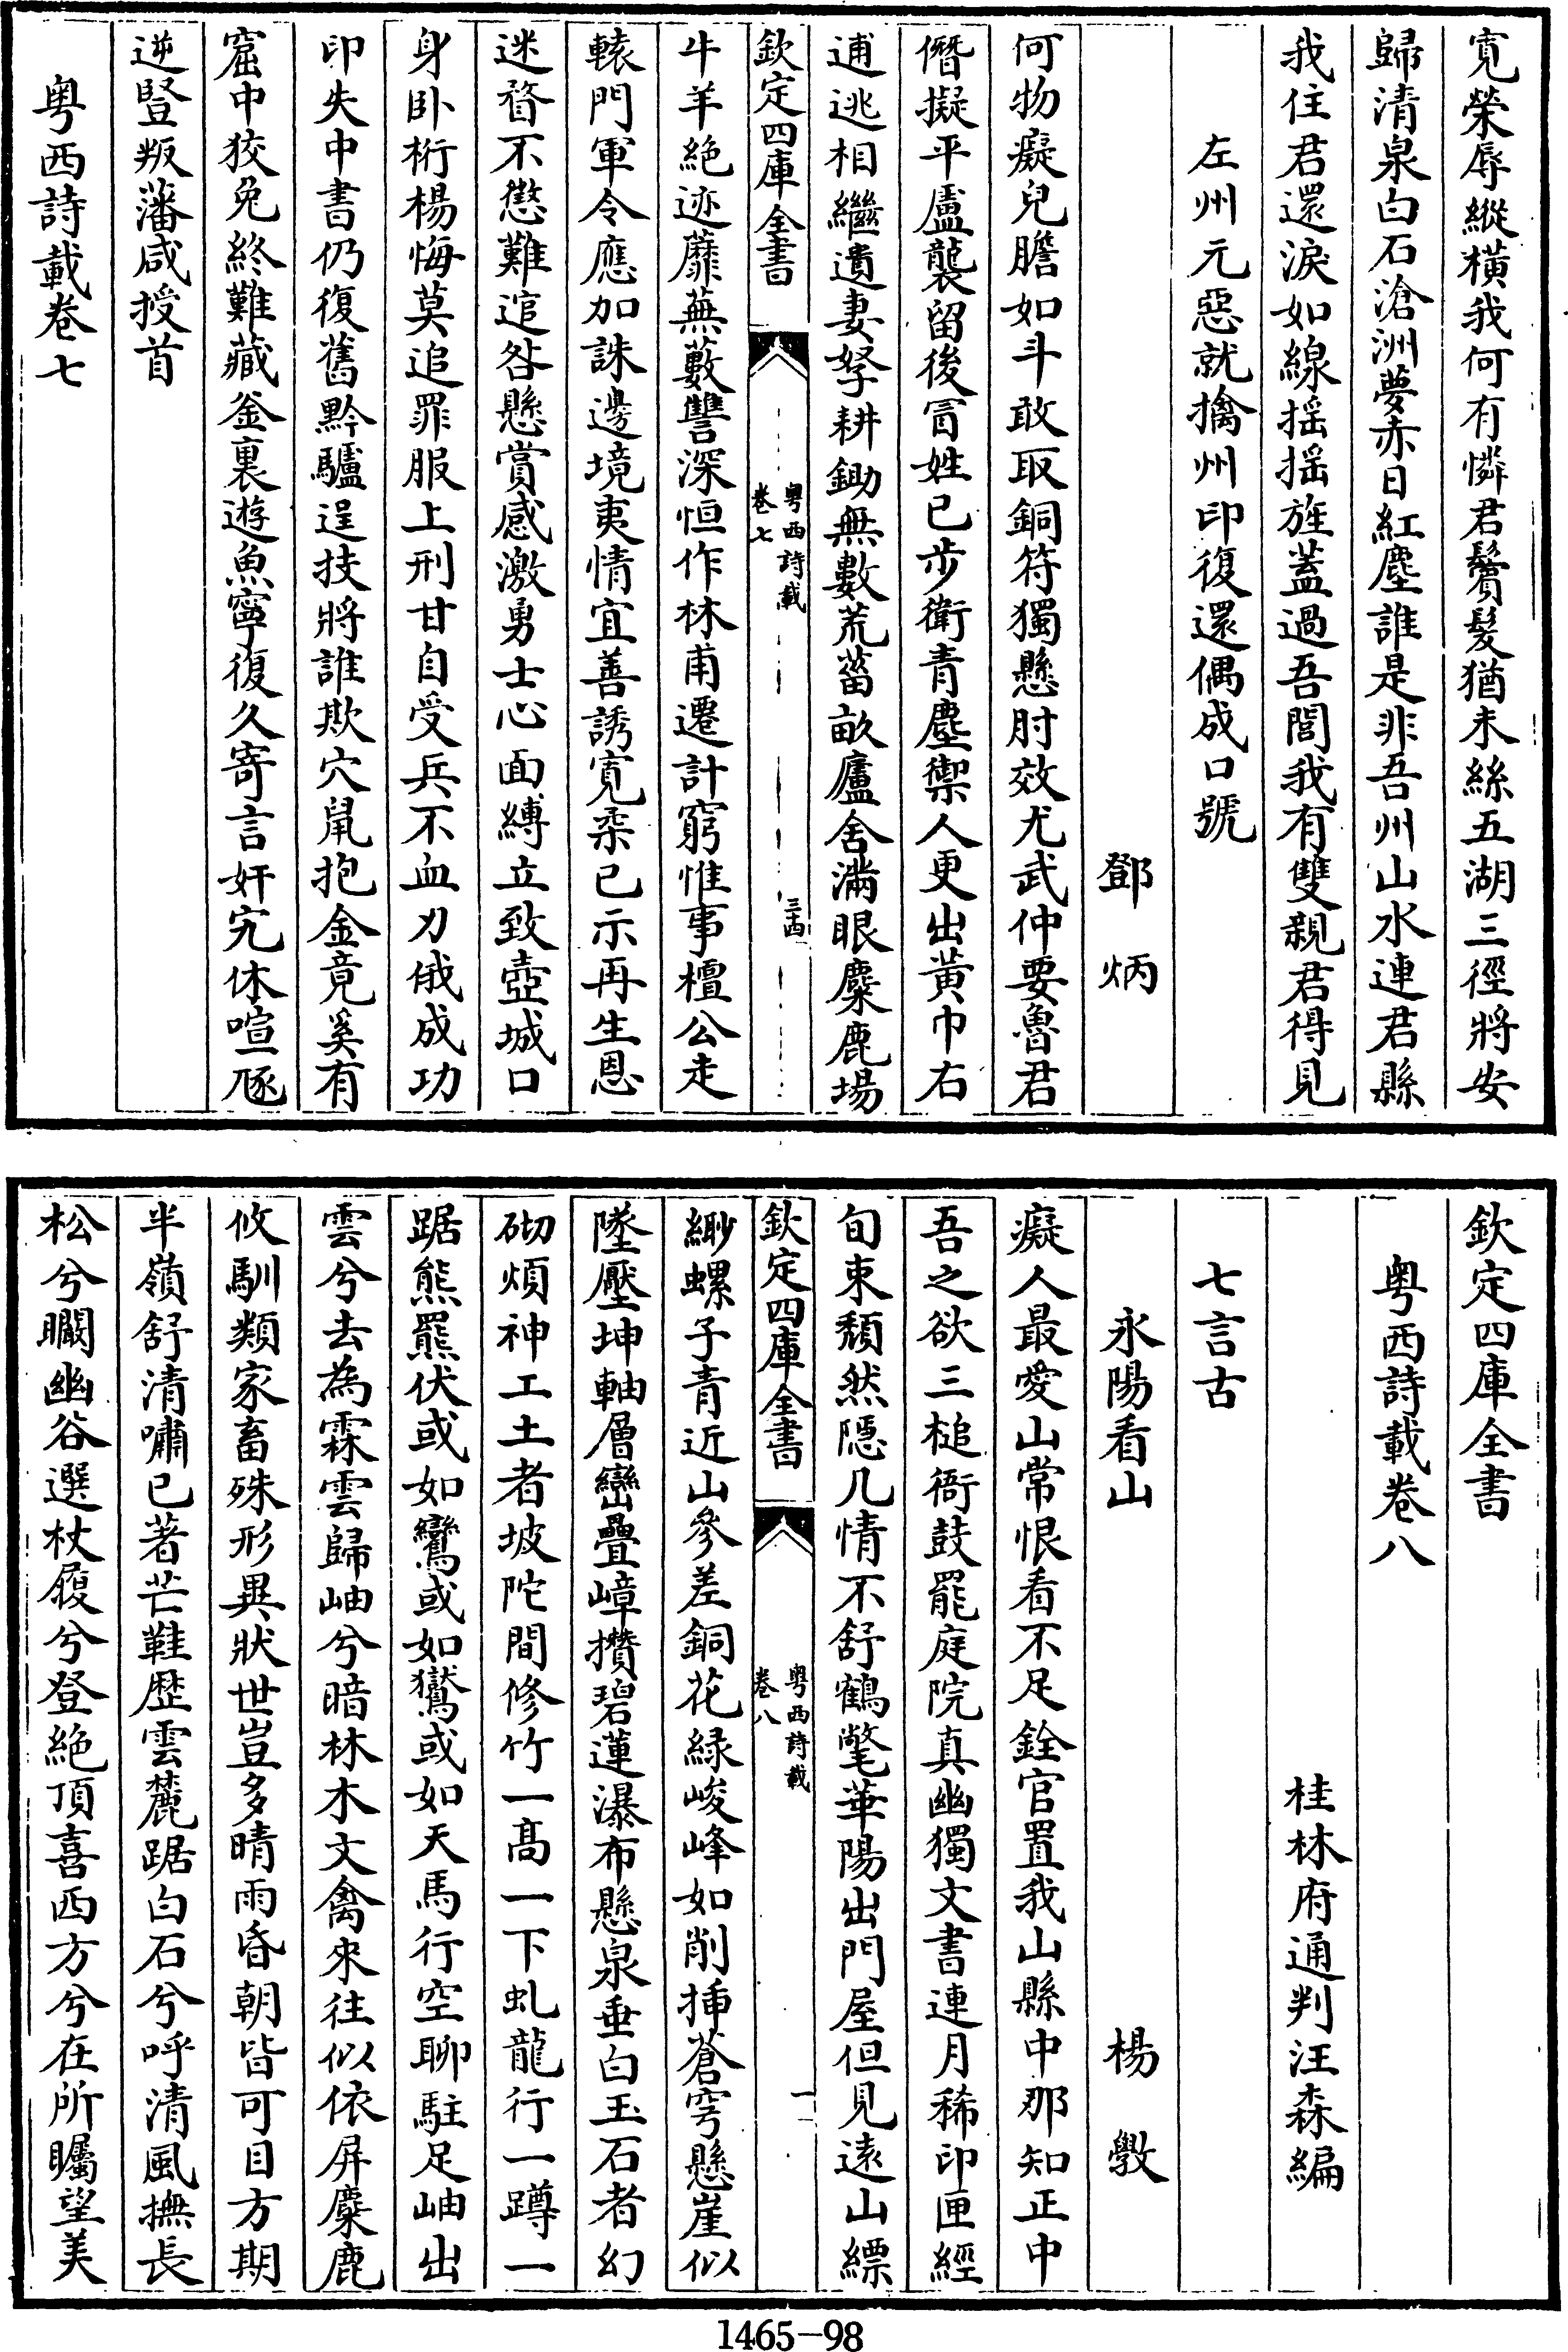 寛榮辱縱横我何有憐君鬢髮猶未絲五湖三徑將安
歸清泉白石滄洲夢赤日紅塵誰是非吾州山水連君縣
我住君還淚如線揺揺旌蓋過吾閭我有雙親君得見
左州元惡就擒州印復還偶成口號
鄧炳
何物癡兒膽如斗敢取銅符獨懸肘效尤武仲要魯君
僭擬平盧襲留後冒姓已步衛青塵禦人更出黄巾右
逋逃相繼遺妻孥耕鋤無數荒菑畝廬舍滿眼麋鹿場
欽定四庫全書
粤西詩載
卷七
三西
牛羊絶迹蘼蕪藪讐深恒作林甫遷計窮惟事檀公走
轅門軍令應加誅邊境夷情宜善誘寛柔已示再生恩
迷瞀不懲難逭咎懸賞感激勇士心面縛立致壺城口
身卧桁楊悔莫追罪服上刑甘自受兵不血刃俄成功
印失中書仍復舊黔驢逞技將誰欺穴䑕抱金竟奚有
窟中狡兔終難藏釡裏遊魚寧復久寄言奸宄休喧豗
逆豎叛藩咸授首
粤西詩載卷七
欽定四庫全書
粤西詩載卷八
桂林府通判汪森編
七言古
永陽看山
楊斆
癡人最愛山常恨看不足銓官置我山縣中那知正中
吾之欲三槌衙鼓罷庭院真幽獨文書連月稀印匣經
旬束頽然隠几情不舒鶴氅華陽出門屋但見逺山縹
欽定四庫全書
粤西詩載
卷八
一
緲螺子青近山參差銅花緑峻峰如削揷蒼穹懸崖似
墜壓坤軸層巒疊嶂攢碧蓮瀑布懸泉垂白玉石者幻
砌煩神工土者坡陀間修竹一髙一下虬龍行一蹲一
踞熊羆伏或如鸞或如鷟或如天馬行空聊駐足岫出
雲兮去為霖雲歸岫兮暗林木文禽來往似依屏麋鹿
攸馴類家畜殊形異狀世豈多晴雨昏朝皆可目方期
半嶺舒清嘯已著芒鞋歴雲麓踞白石兮呼清風撫長
松兮瞯幽谷選杖履兮登絶頂喜西方兮在所矚望美
1465-98